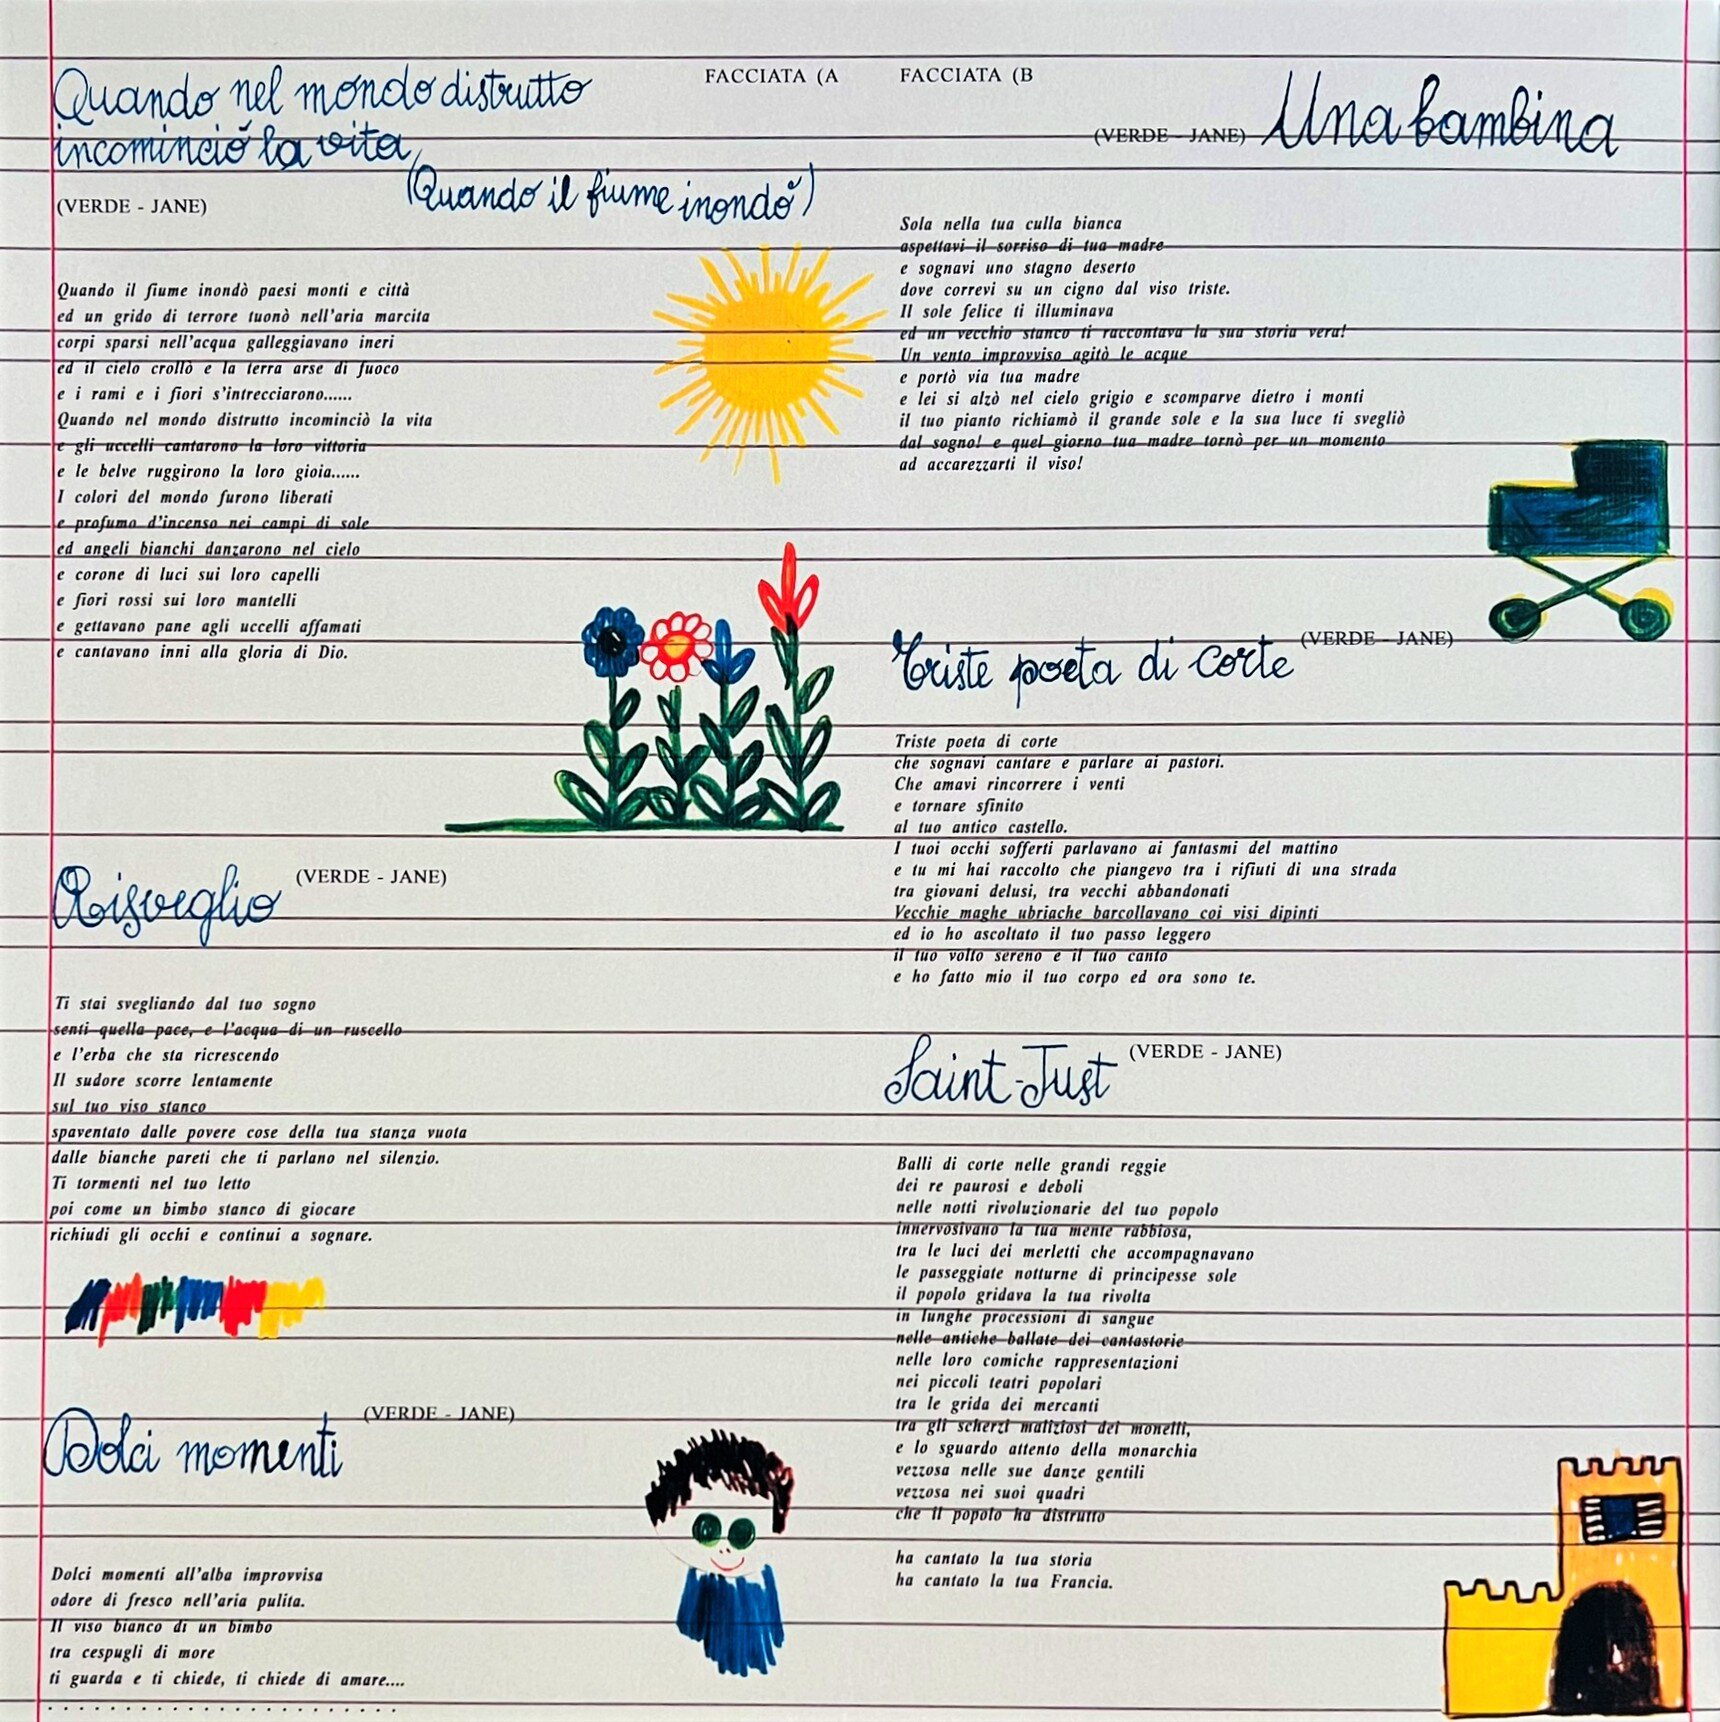 FACCIATA (A
Quando nel mondo distrutto
incominciò la vita
(Quando il fiume inondò)
(VERDE - JANE)
Quando il fiume inondò paesi monti e città
ed un grido di terrore tuonò nell'aria marcita
corpi sparsi nell'acqua galleggiavano ineri
ed il cielo crollò e la terra arse di fuoco
e i rami e i fiori s'intrecciarono......
Quando nel mondo distrutto incominciò la vita
e gli uccelli cantarono la loro vittoria
e le belve ruggirono la loro gioia......
I colori del mondo furono liberati
e profumo d'incenso nei campi di sole
ed angeli bianchi danzarono nel cielo
e corone di luci sui loro capelli
e fiori rossi sui loro mantelli
e gettavano pane agli uccelli affamati
e cantavano inni alla gloria di Dio.
Risveglio (VERDE - JANE)
Ti stai svegliando dal tuo sogno
senti quella pace, e l'acqua di un ruscello
e l'erba che sta ricrescendo
Il sudore scorre lentamente
sul tuo viso stanco
spaventato dalle povere cose della tua stanza vuota
dalle bianche pareti che ti parlano nel silenzio.
Ti tormenti nel tuo letto
poi come un bimbo stanco di giocare
richiudi gli occhi e continui a sognare.
Dolci momenti (VERDE - JANE)
Dolci momenti all'alba improvvisa
odore di fresco nell'aria pulita.
Il viso bianco di un bimbo
tra cespugli di more
ti guarda e ti chiede, ti chiede di amare....
. . . . . . . . . . . . . . . . . . . . . . .
FACCIATA (B
(VERDE - JANE) Una bambina
Sola nella tua culla bianca
aspettavi il sorriso di tua madre
e sognavi uno stagno deserto
dove correvi su un cigno dal viso triste.
Il sole felice ti illuminava
ed un vecchio stanco ti raccontava la sua storia vera!
Un vento improvviso agitò le acque
e portò via tua madre
e lei si alzò nel cielo grigio e scomparve dietro i monti
il tuo pianto richiamò il grande sole e la sua luce ti svegliò
dal sogno! e quel giorno tua madre tornò per un momento
ad accarezzarti il viso!
Triste poeta di corte (VERDE - JANE)
Triste poeta di corte
che sognavi cantare e parlare ai pastori.
Che amavi rincorrere i venti
e tornare sfinito
al tuo antico castello.
I tuoi occhi sofferti parlavano ai fantasmi del mattino
e tu mi hai raccolto che piangevo tra i rifiuti di una strada
tra giovani delusi, tra vecchi abbandonati
Vecchie maghe ubriache barcollavano coi visi dipinti
ed io ho ascoltato il tuo passo leggero
il tuo volto sereno e il tuo canto
e ho fatto mio il tuo corpo ed ora sono te.
Saint-Just (VERDE - JANE)
Balli di corte nelle grandi reggie
dei re paurosi e deboli
nelle notti rivoluzionarie del tuo popolo
innervosivano la tua mente rabbiosa,
tra le luci dei merletti che accompagnavano
le passeggiate notturne di principesse sole
il popolo gridava la tua rivolta
in lunghe processioni di sangue
nelle antiche ballate dei cantastorie
nelle loro comiche rappresentazioni
nei piccoli teatri popolari
tra le grida dei mercanti
tra gli scherzi maliziosi dei monelli,
e lo sguardo attento della monarchia
vezzosa nelle sue danze gentili
vezzosa nei suoi quadri
che il popolo ha distrutto
ha cantato la tua storia
ha cantato la tua Francia.